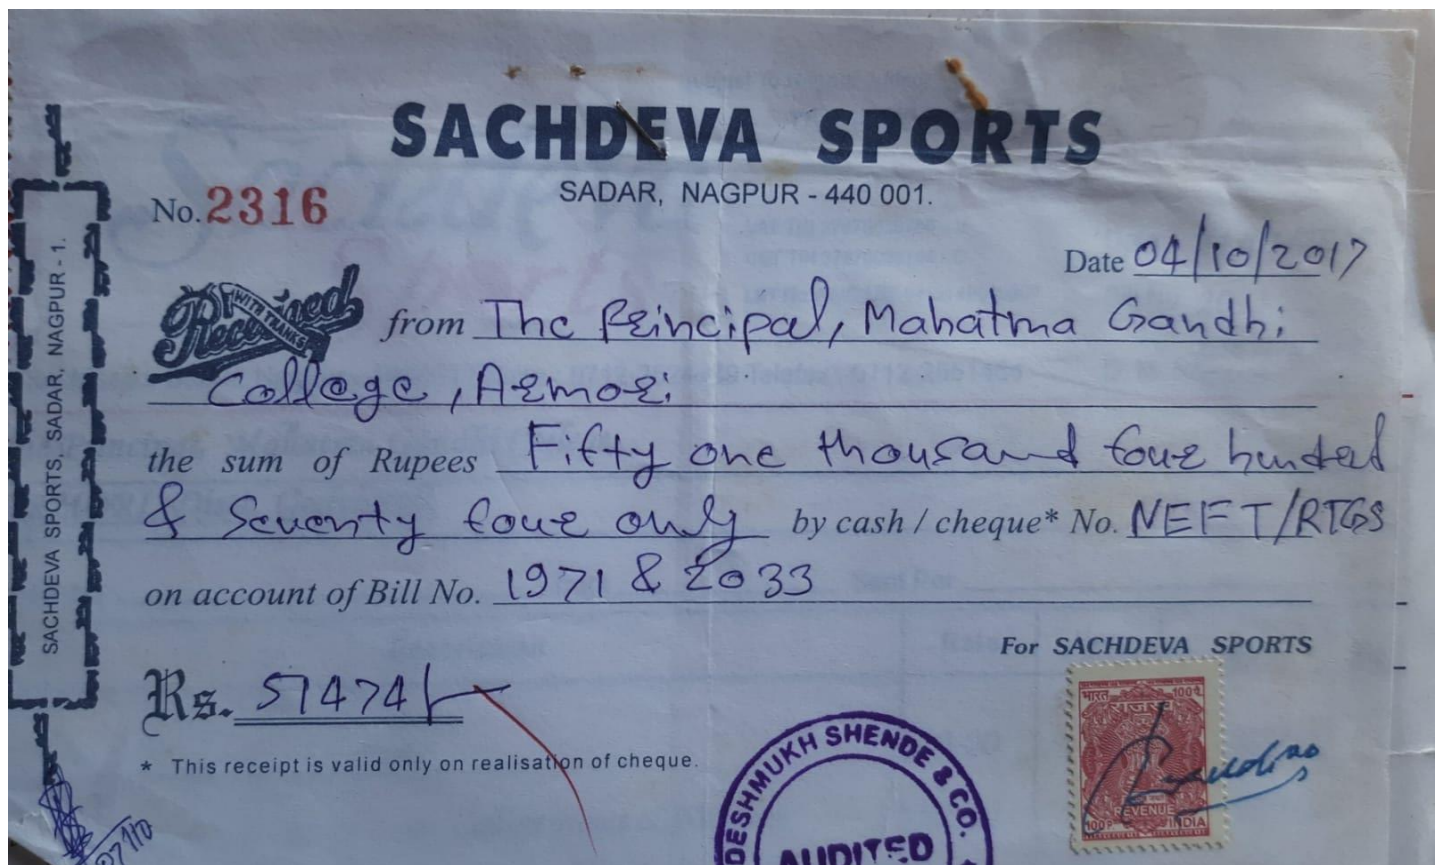 SACHDEVA SPORTS
SADAR, NAGPUR - 440 001.
No. 2316
Date 04/10/2017
Received WITH THANKS from The Principal, Mahatma Gandhi
College, Armori
the sum of Rupees Fifty one thousand four hundred
& Seventy four only by cash / cheque* No. NEFT/RTGS
on account of Bill No. 1971 & 2033
For SACHDEVA SPORTS
Rs. 51474/-
* This receipt is valid only on realisation of cheque.
SACHDEVA SPORTS, SADAR, NAGPUR - 1.
DESHMUKH SHENDE & CO.
AUDITED
भारत 100प.
राजस्व
REVENUE
100P INDIA